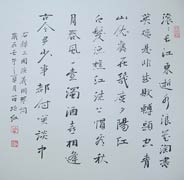 滚滚長江東逝水浪花淘盡
英雄是非成敗轉頭空青
山依舊在幾度夕陽紅
白髮漁樵江渚上慣看秋
月春風一壺濁酒喜相逢
古今多少事都付笑談中
右錄三國演義開篇詞